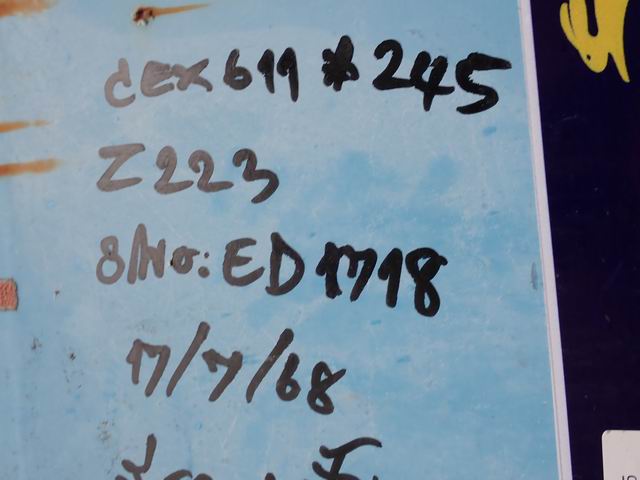 CEX611*245
Z223
S/No:ED1718
17/7/68